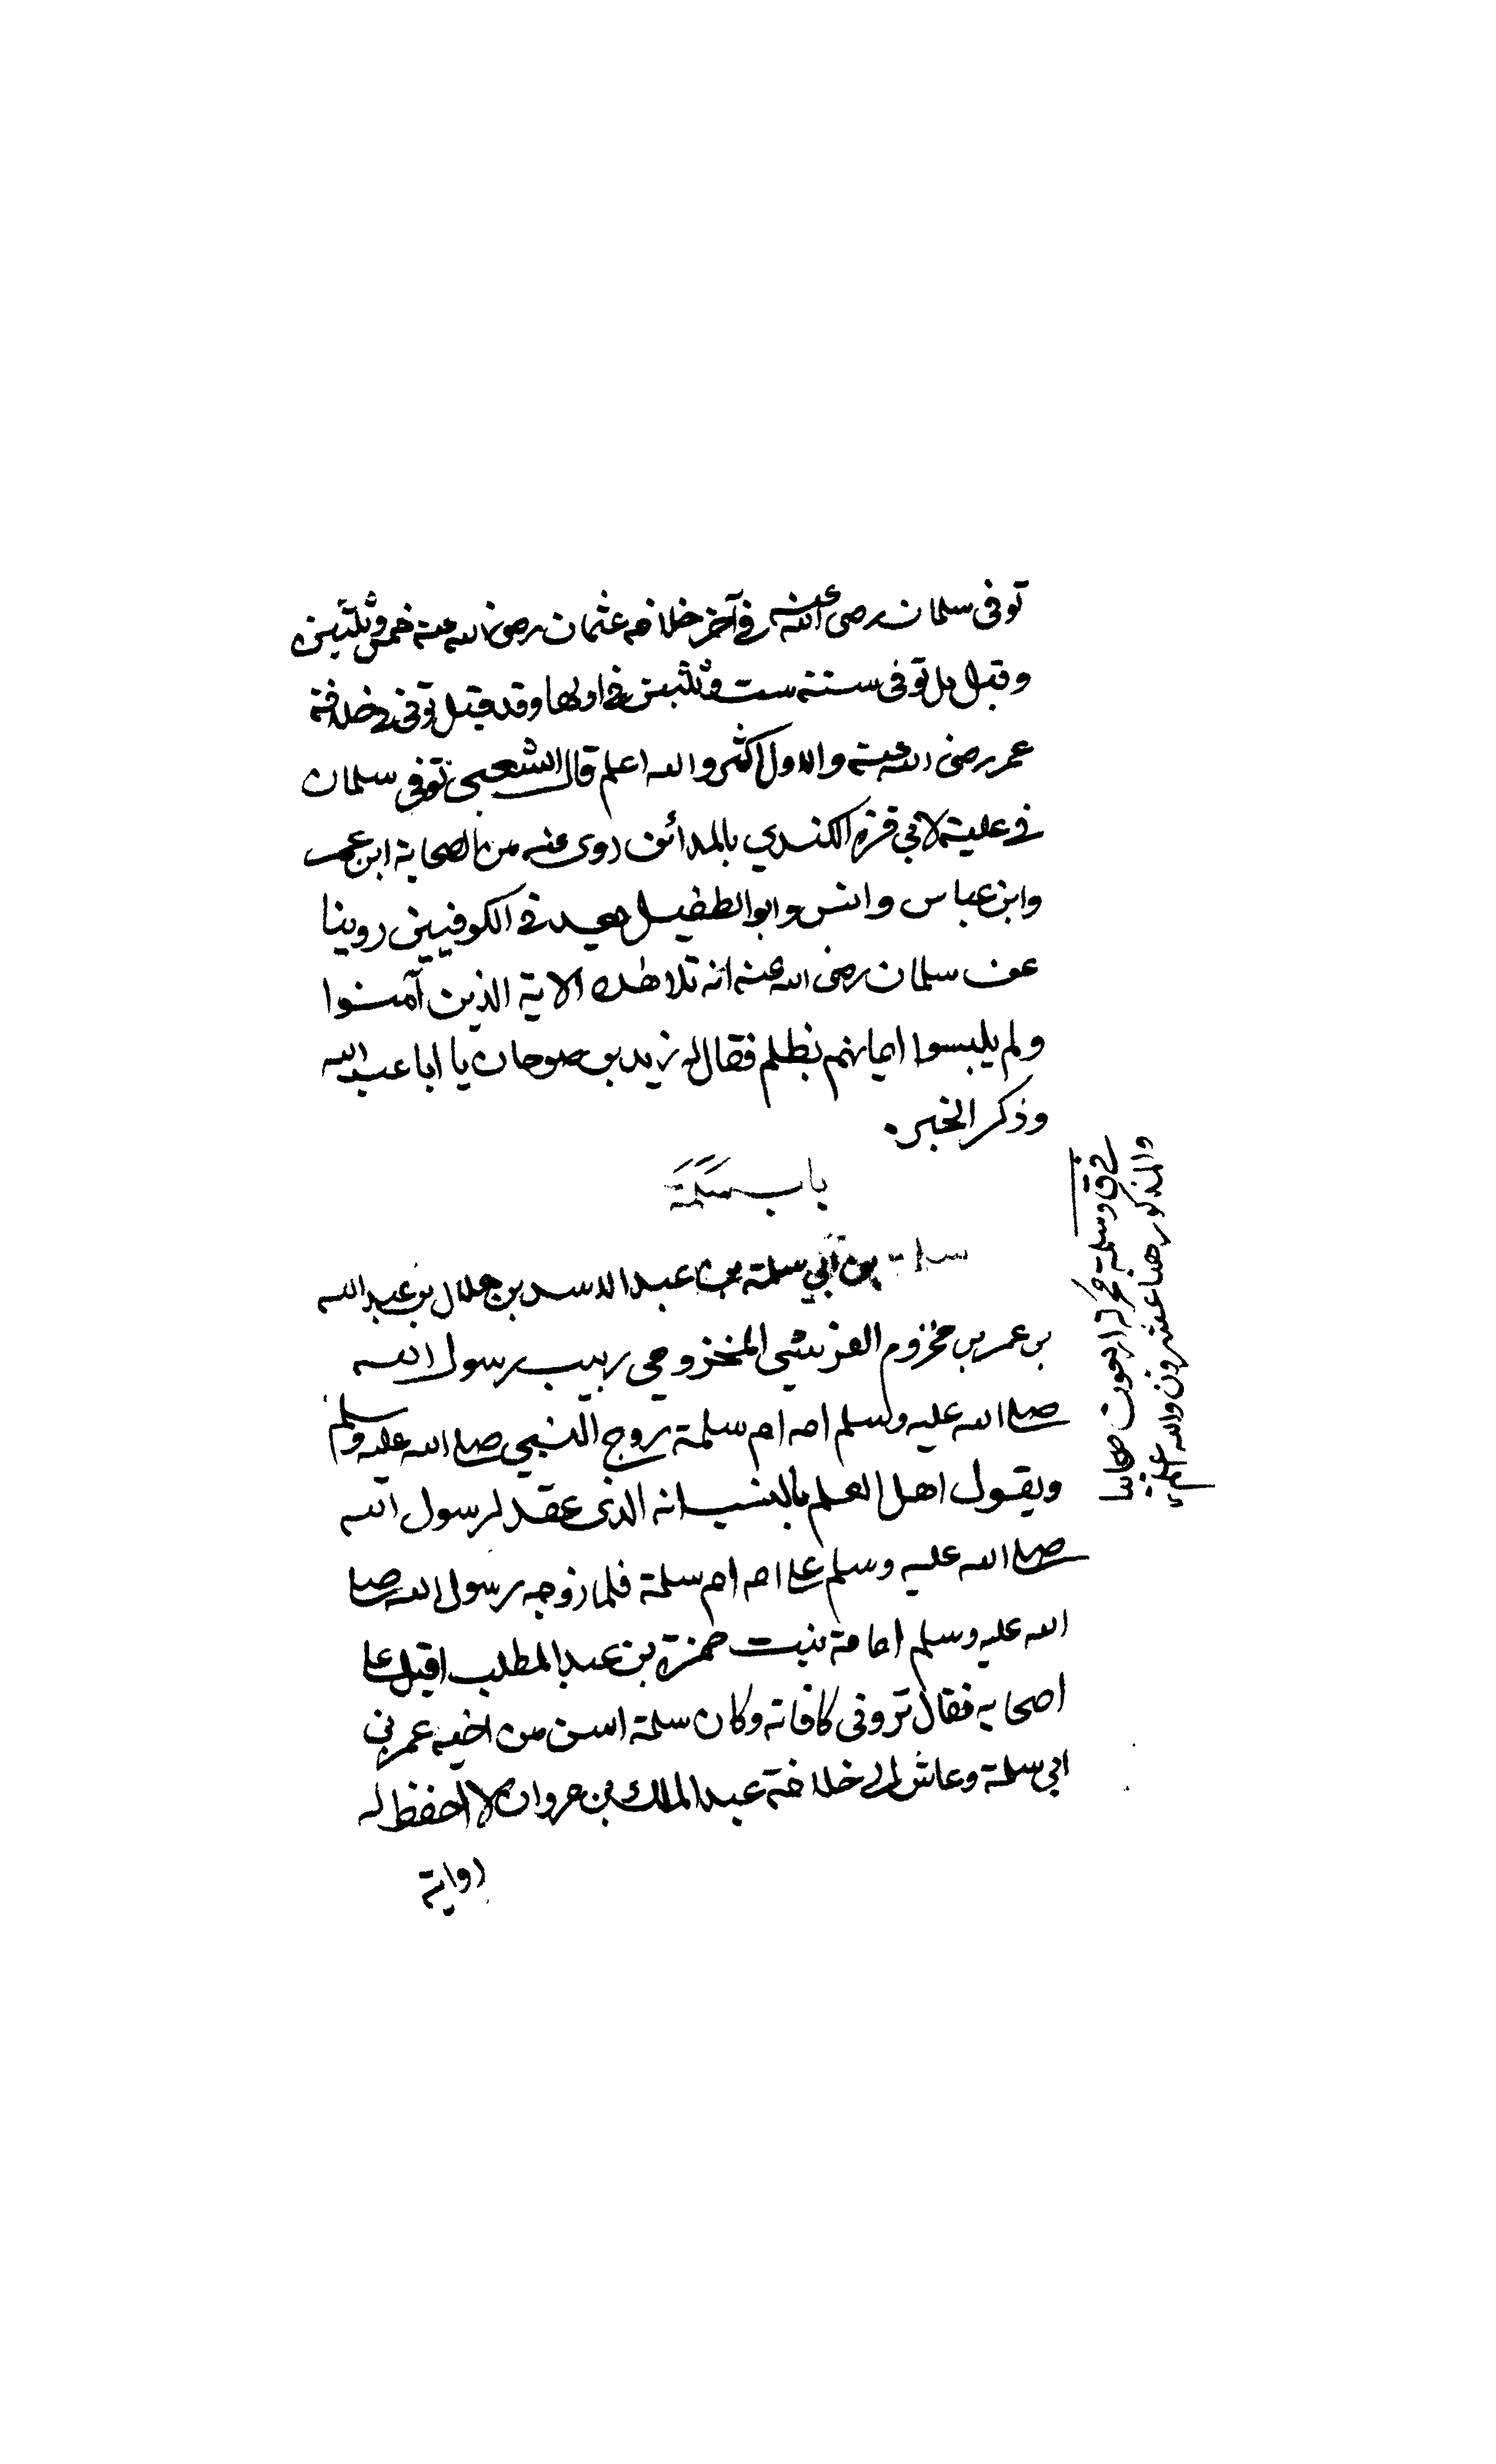 توفى سلمان رضى الله عنه فى آخر خلافه عثمان رضى الله عنه خمس وثلثين
وقيل بل توفى سنته ست وثلثين فى اولها وقد قيل توفى فى خلافة
عمر رضى الله عنه والاول اكثر والله اعلم قال الشعبى توفى سلمان
فى علية لابي قرة الكندي بالمدائن روى عنه من الصحابة ابن عمر
وابن عباس وانس وابو الطفيل يعد فى الكوفيين روينا
عن سلمان رضى الله عنه انه تلا هذه الاية الذين آمنوا
ولم يلبسوا ايمانهم بظلم فقال له زيد بن صوحان يا ابا عبد الله
وذكر الخبر.
باب سلمة
سلمة بن أبي سلمة بن عبد الاسد بن هلال بن عبد الله
بن عمر بن مخزوم القرشي المخزومي ربيب رسول الله
صلى الله عليه وسلم امه ام سلمة زوج النبي صلى الله عليه وسلم
ويقول اهل العلم بالنسب انه الذى عقد لرسول الله
صلى الله عليه وسلم على امه ام سلمة فلما زوجه رسول الله صلى
الله عليه وسلم امامة بنت حمزة بن عبد المطلب اقبل على
اصحابه فقال تروني كافاته وكان سلمة اسن من اخيه عمر بن
ابي سلمة وعاش الى خلافة عبد الملك بن مروان لا احفظ له
رواية
فى ق وسلمة محركة اربعون صحابيا
والمذكور هنا عشرون والله اعلم